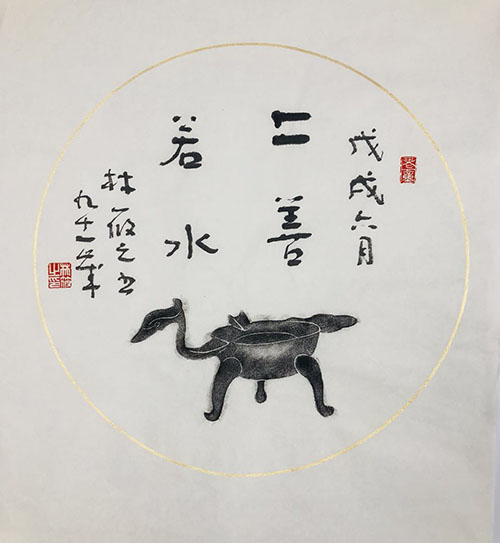 戊戌六月
上善
若水
林筱之书
九十一歲